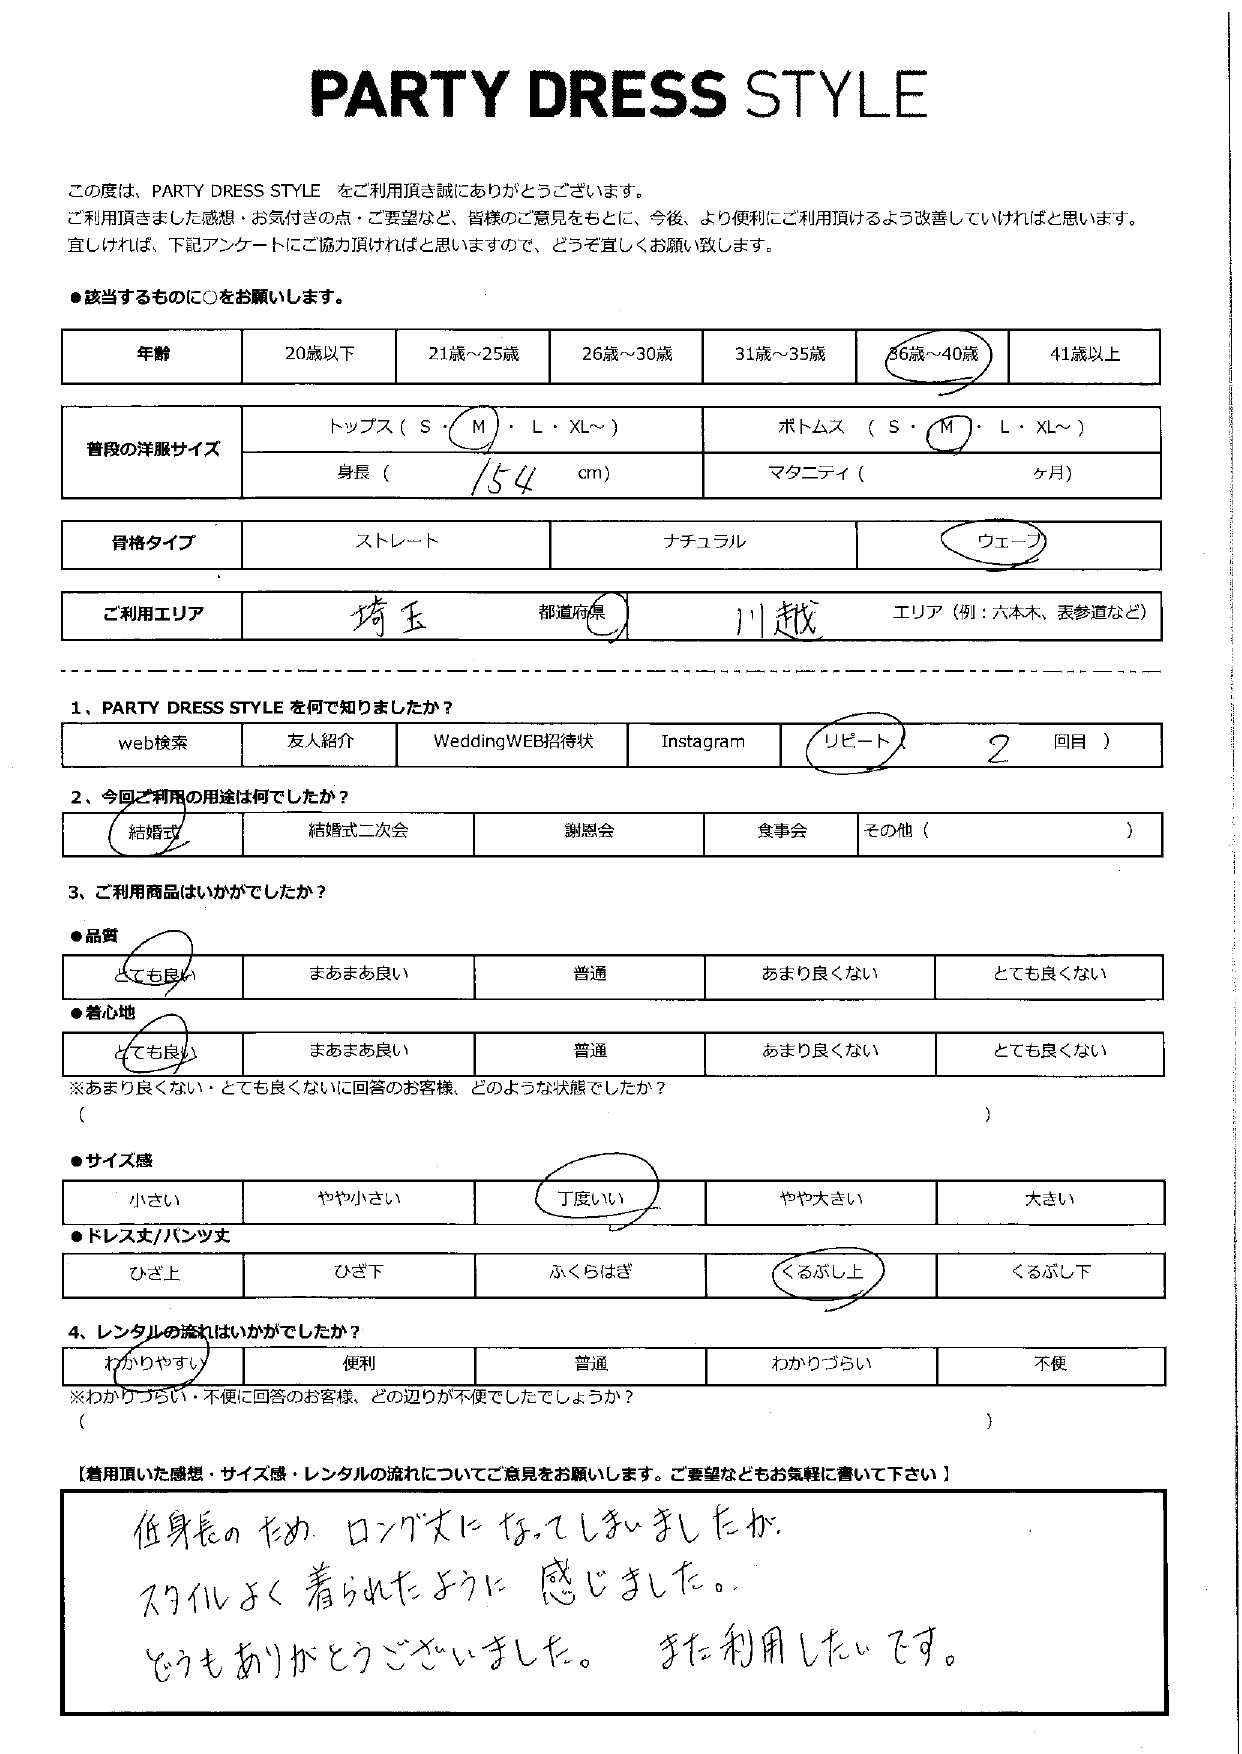 PARTY DRESS STYLE
この度は、PARTY DRESS STYLE をご利用頂き誠にありがとうございます。
ご利用頂きました感想・お気付きの点・ご要望など、皆様のご意見をもとに、今後、より便利にご利用頂けるよう改善していければと思います。
宜しければ、下記アンケートにご協力頂ければと思いますので、どうぞ宜しくお願い致します。
●該当するものに○をお願いします。
年齢 20歳以下 21歳～25歳 26歳～30歳 31歳～35歳 36歳～40歳 41歳以上
普段の洋服サイズ トップス ( S ・ M ・ L ・ XL～ ) ボトムス ( S ・ M ・ L ・ XL～ )
身長 ( 154 cm) マタニティ ( ヶ月)
骨格タイプ ストレート ナチュラル ウェーブ
ご利用エリア 埼玉 都道府県 川越 エリア（例：六本木、表参道など）
1、PARTY DRESS STYLE を何で知りましたか？
web検索 友人紹介 WeddingWEB招待状 Instagram リピート ( 2 回目 )
2、今回ご利用の用途は何でしたか？
結婚式 結婚式二次会 謝恩会 食事会 その他 ( )
3、ご利用商品はいかがでしたか？
●品質
とても良い まあまあ良い 普通 あまり良くない とても良くない
●着心地
とても良い まあまあ良い 普通 あまり良くない とても良くない
※あまり良くない・とても良くないに回答のお客様、どのような状態でしたか？
( )
●サイズ感
小さい やや小さい 丁度いい やや大きい 大きい
●ドレス丈/パンツ丈
ひざ上 ひざ下 ふくらはぎ くるぶし上 くるぶし下
4、レンタルの流れはいかがでしたか？
わかりやすい 便利 普通 わかりづらい 不便
※わかりづらい・不便に回答のお客様、どの辺りが不便でしたでしょうか？
( )
【着用頂いた感想・サイズ感・レンタルの流れについてご意見をお願いします。ご要望などもお気軽に書いて下さい】
低身長のため ロング丈に なってしまいましたが、
スタイルよく 着られたように 感じました。
どうもありがとうございました。 また利用したいです。